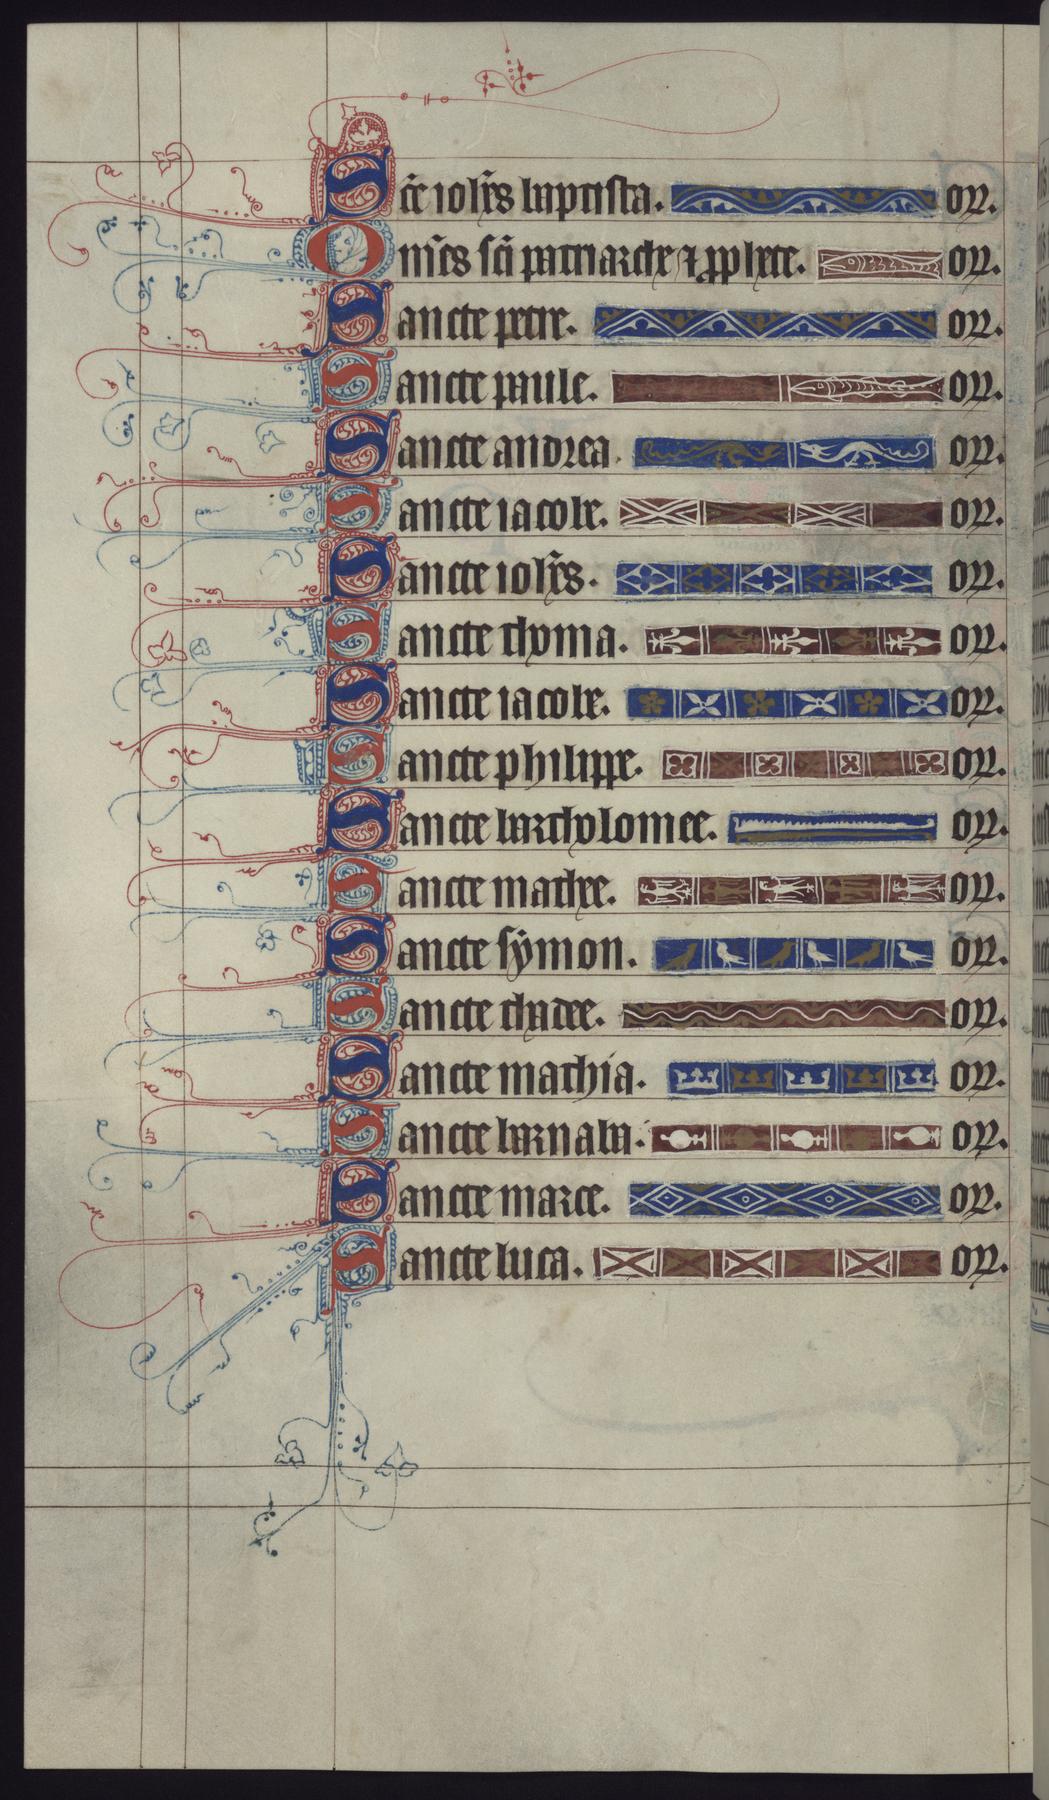 Sc̄e ioh̄es baptista. or̄.
Om̄es sc̄i patriarche ⁊ ꝓphete. or̄.
Sancte petre. or̄.
Sancte paule. or̄.
Sancte andrea. or̄.
Sancte iacobe. or̄.
Sancte ioh̄es. or̄.
Sancte thoma. or̄.
Sancte iacobe. or̄.
Sancte philippe. or̄.
Sancte bartholomee. or̄.
Sancte mathee. or̄.
Sancte symon. or̄.
Sancte thadee. or̄.
Sancte mathia. or̄.
Sancte barnaba. or̄.
Sancte marce. or̄.
Sancte luca. or̄.